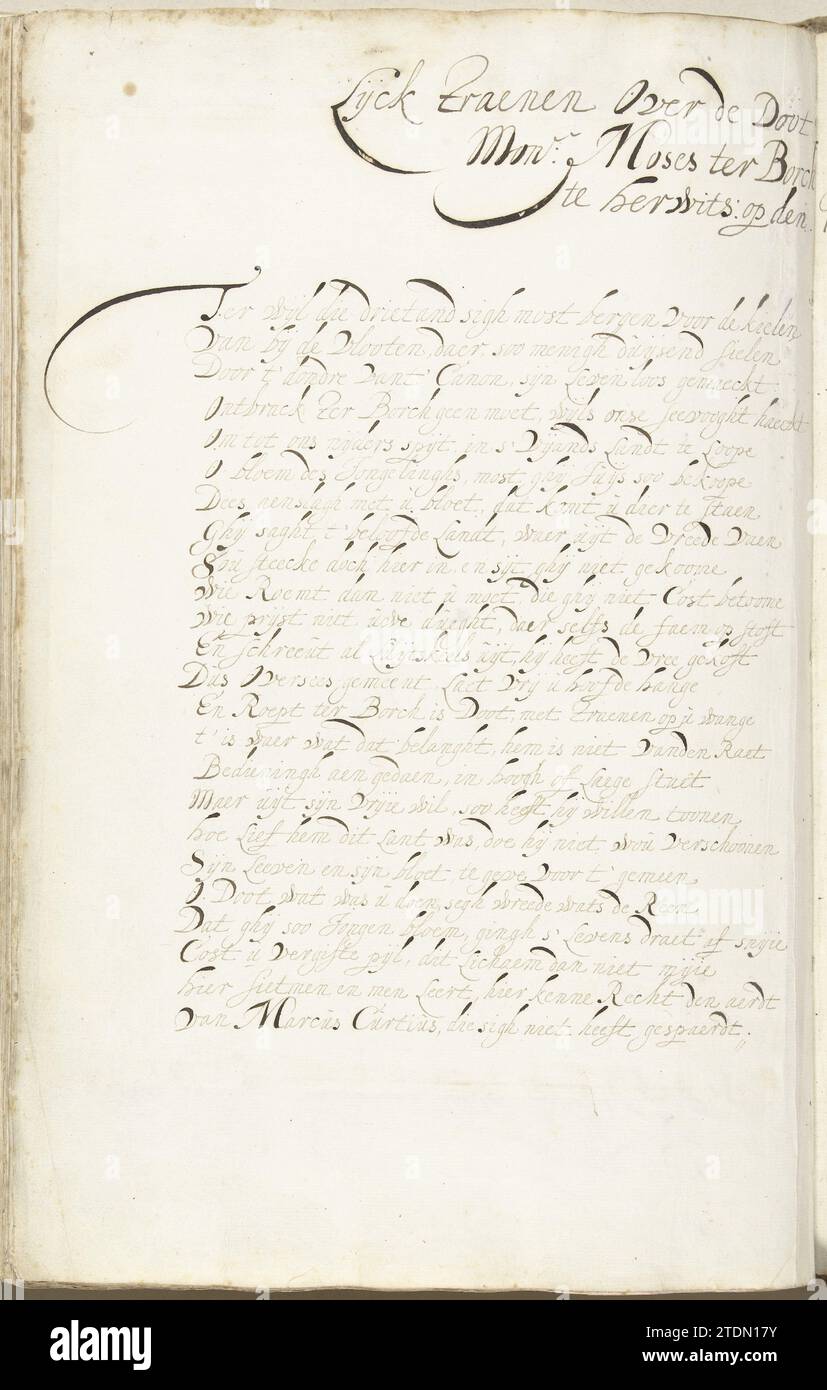 Lijck Traenen Over de Doot
Monr. Moses ter Borch
te herwits: op den
Ter wijl die drietand sigh most bergen voor de kielen
Van bij de Vlooten, daer soo menigh duijsend sielen
Door t' dondre vant Canon, sijn Leven loos gemaeckt
Ontbrack Ter Borch geen moet, wijls onse seevooght haeckt
Om tot ons nijders spijt, in s' Vijands Landt te Loope
O bloem des Jongelinghs, most ghij suijs soo bekoope
Dees aenslagh met u bloet, dat komt u daer te staen
Ghij saght, t' beloofde Landt, waer uijt de Vreede Vaen
Sou steecke doch hier in, en sijt ghij niet gekoome
Wie Roemt dan niet u moet, die ghij niet Cost betoome
Wie prijst niet uwe dueght, daer selfs de faem op stoft
En schreeut al Luijtskeels uijt, hij heeft de Vree gekoft
Das Oversees, gemeent, Laet Vrij u hoofde hange
En Roept ter Borch is Doot, met Traenen op u wange
t' is waer wat dat belanght, hem is niet Vanden Raet
Bedieningh aen gedaen, in hoogh of Laege staet
Maer uijt sijn Vrije wil, soo heeft hij willen toonen
hoe Lief hem dit Lant was, doe hij niet wou Verschoonen
Sijn Leeven en sijn bloet, te geve Voor t' gemeen
O Doot wat was u doen, segh wreede wats de Reen
Dat ghij soo Jongen bloem, gingh s' Levens draet af snijie
Cost u Vergifte pijl, dit Lichaem dan niet mijie
hier sietmen en men Leert, hier kenne Recht den aerdt
Van Marcus Curtius, die sigh niet heeft gespaerdt.
alamy
Image ID: 2TDN17Y
www.alamy.com